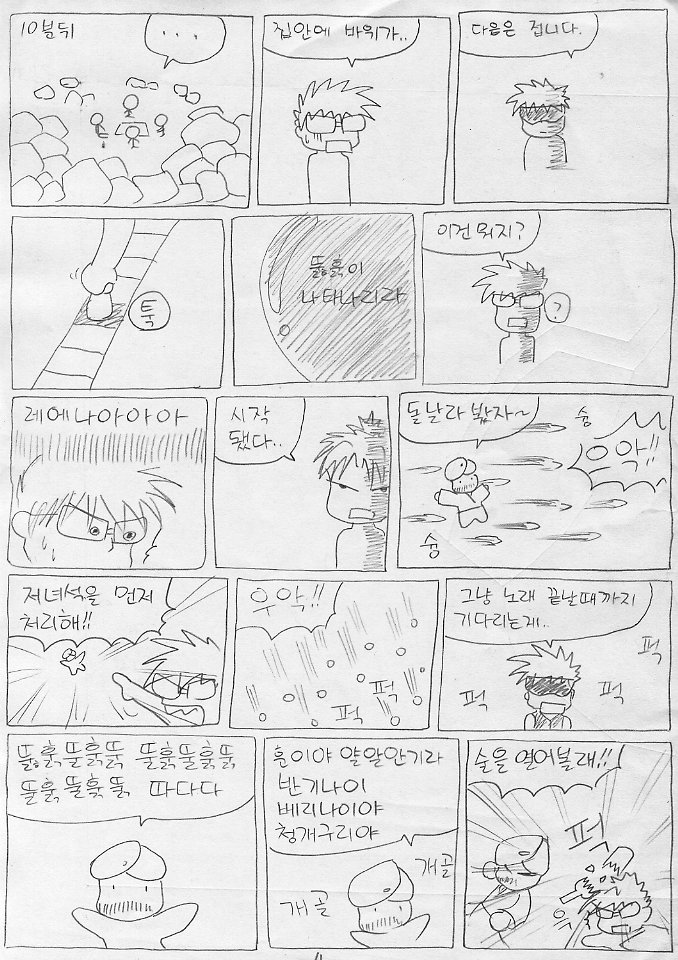 10분뒤
...
집안에 바위가..
다음은 접니다.
툭
뚫훍이
나타나리라
이건 뭐지?
?
레에나아아아
시작
됐다..
돌날라 봤자~
슝
우악!!
슝
저녀석을 먼저
처리해!!
우악!!
퍽
퍽
그냥 노래 끝날때까지
기다리는게..
퍽
퍽
퍽
따다다
훈이야 얄알안기라
반기나이
베리나이야
청개구리야
개골
개골
술을 열어볼래!!
퍽
윽